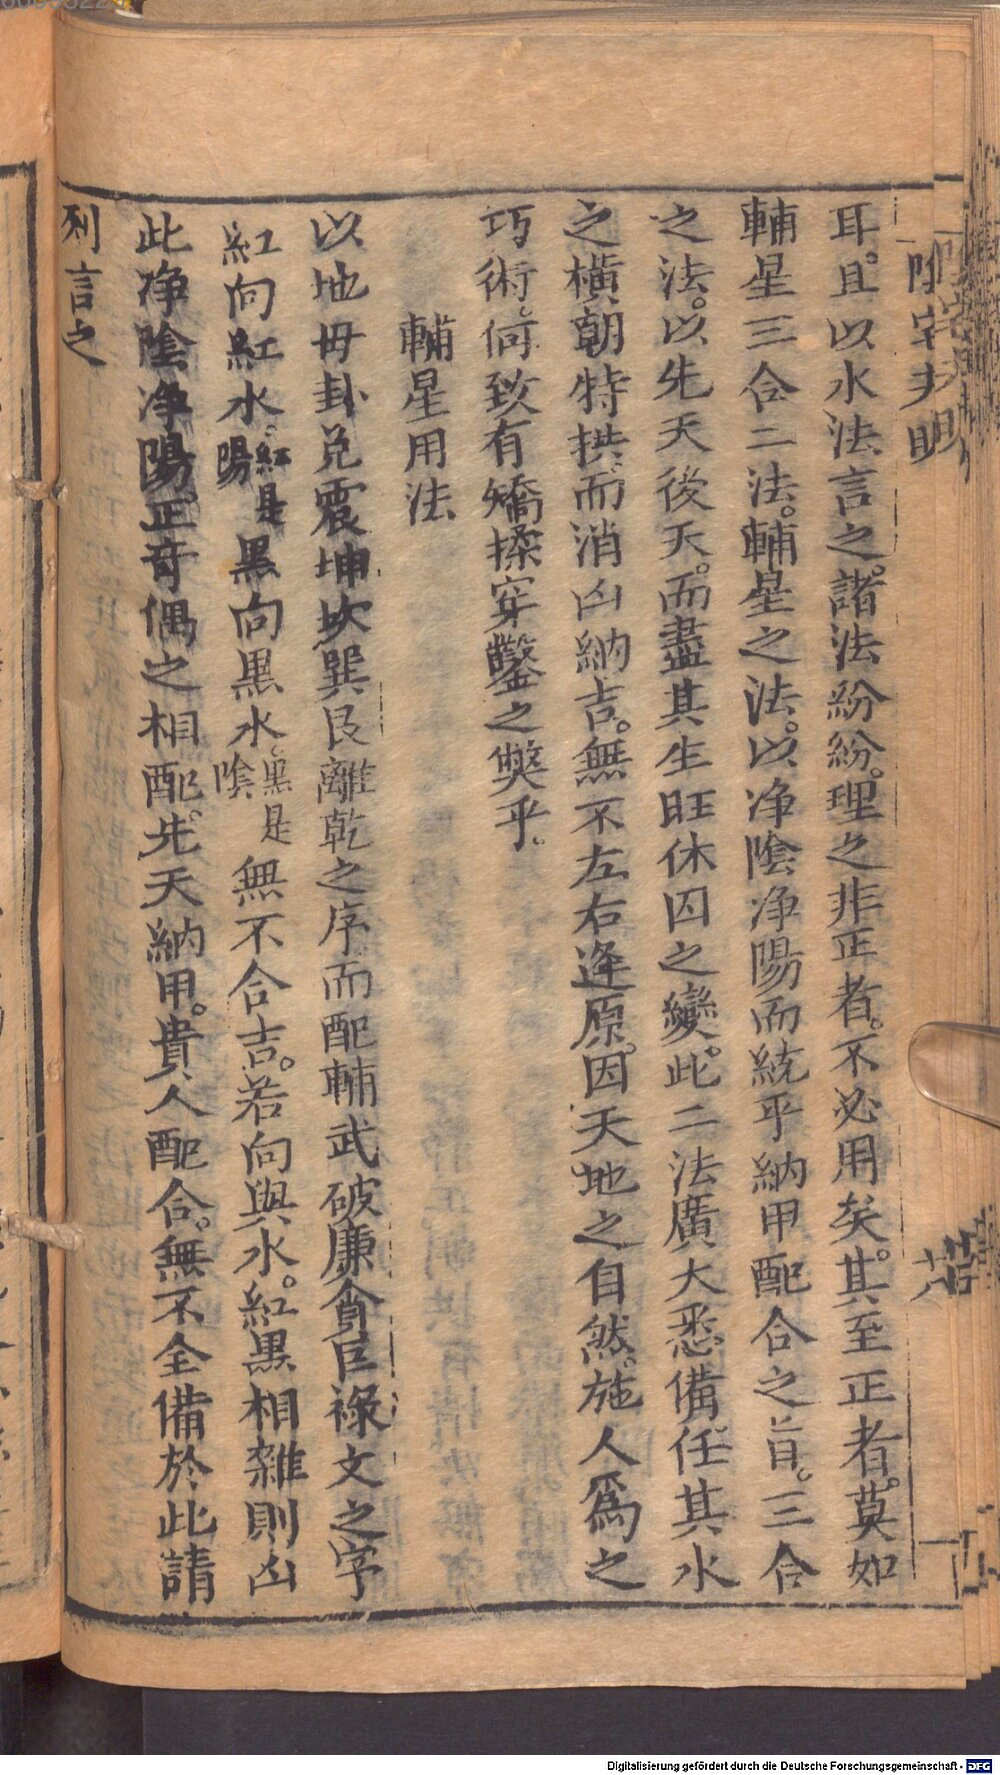 耳。且以水法言之。諸法紛紛。理之非正者。不必用矣。其至正者。莫如
輔星三合二法。輔星之法。以净隂净陽而統乎納甲配合之旨。三合
之法。以先天後天。而盡其生旺休囚之變。此二法廣大悉備任其水
之橫朝特拱。而消凶納吉。無不左右逢原。因天地之自然。施人爲之
巧術。何致有矯揉穿鑿之獘乎。
輔星用法
以地母卦兌震坤坎巽艮離乾之序而配輔武破廉貪巨祿文之字
紅向紅水。紅是陽黒向黒水。黒是隂無不合吉。若向與水。紅黒相雜則凶
此净隂净陽。正竒偶之相配。先天納甲。貴人配合。無不全備於此請
列言之
Digitalisierung gefördert durch die Deutsche Forschungsgemeinschaft - DFG